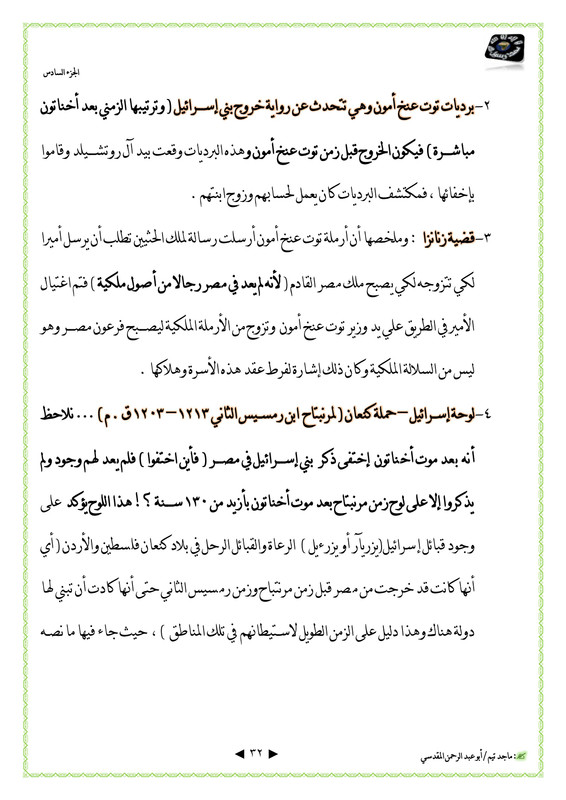 الجزء السادس
٢- برديات توت عنخ أمون وهي تتحدث عن رواية خروج بني إسرائيل ( وترتيبها الزمني بعد أخناتون
مباشرة ) فيكون الخروج قبل زمن توت عنخ أمون وهذه البرديات وقعت بيد آل روتشيلد وقاموا
بإخفائها ، فمكتشف البرديات كان يعمل لحسابهم وزوج ابنتهم .
٣- قضية زنانزا : وملخصها أن أرملة توت عنخ أمون أرسلت رسالة لملك الحثيين تطلب أن يرسل أميرا
لكي تتزوجه لكي يصبح ملك مصر القادم ( لأنه لم يعد في مصر رجالا من أصول ملكية ) فتم اغتيال
الأمير في الطريق علي يد وزير توت عنخ أمون وتزوج من الأرملة الملكية ليصبح فرعون مصر وهو
ليس من السلالة الملكية وكان ذلك إشارة لفرط عقد هذه الأسرة وهلاكها .
٤- لوحة إسرائيل – حملة كنعان ( لمرنبتاح ابن رمسيس الثاني ١٢١٣ – ١٢٠٣ ق . م ) ... نلاحظ
أنه بعد موت أخناتون إختفى ذكر بني إسرائيل في مصر ( فأين اختفوا ) فلم يعد لهم وجود ولم
يذكروا إلا على لوح زمن مرنبتاح بعد موت أخناتون بأزيد من ١٣٠ سنة ؟ ! هذا اللوح يؤكد على
وجود قبائل إسرائيل(يزريآر أو يزرءيل ) الرعاة والقبائل الرحل في بلاد كنعان فلسطين والأردن ( أي
أنها كانت قد خرجت من مصر قبل زمن مرنبتاح وزمن رمسيس الثاني حتى أنها كادت أن تبني لها
دولة هناك وهذا دليل على الزمن الطويل لاستيطانهم في تلك المناطق ) ، حيث جاء فيها ما نصه
: ماجد تيم / أبو عبد الرحمن المقدسي
◄ ٣٢ ►